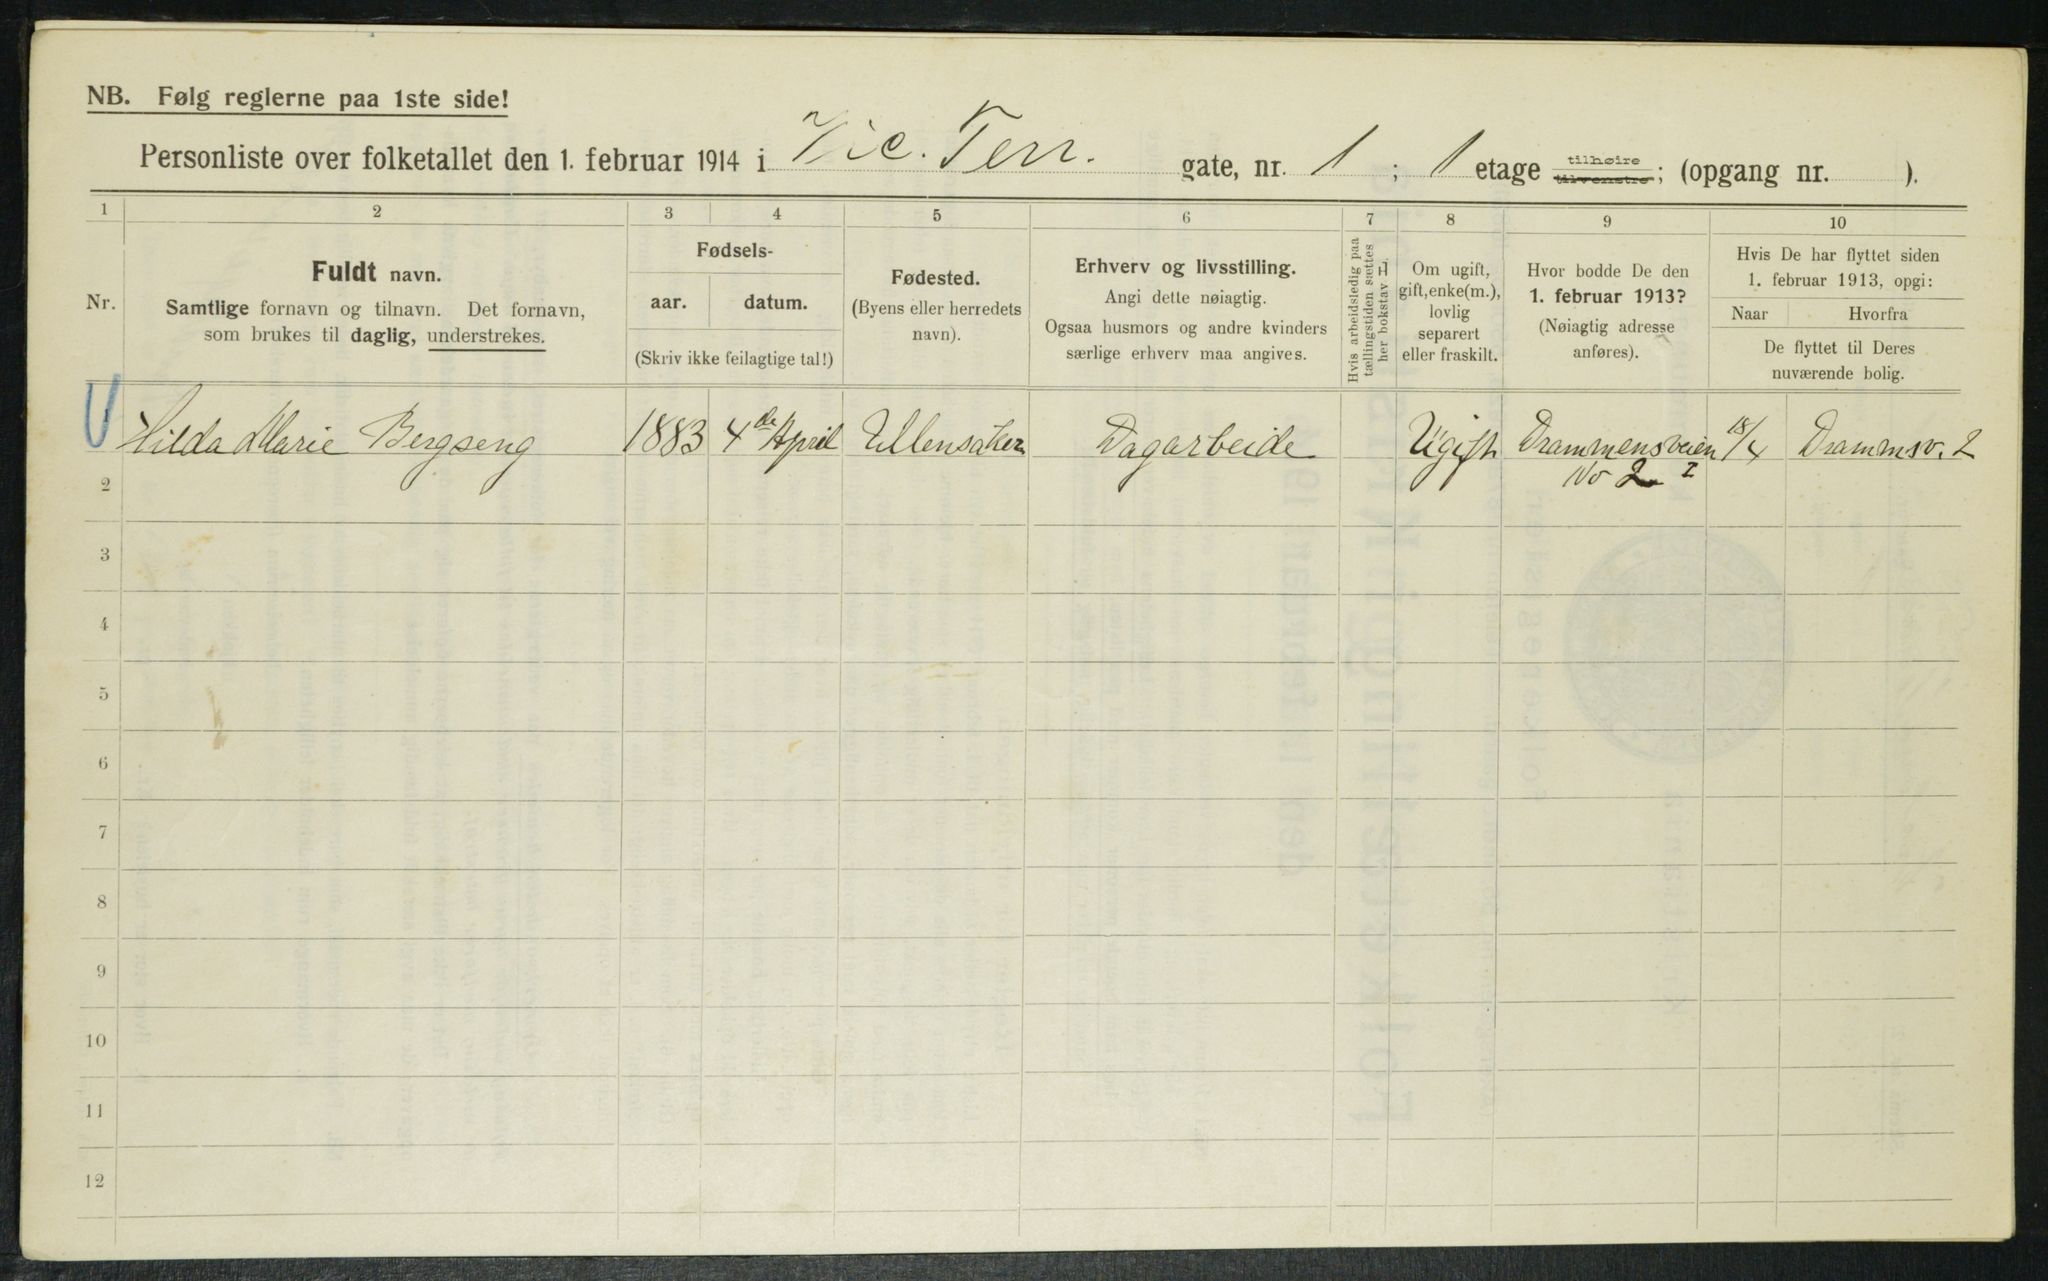 NB. Følg reglerne paa 1ste side!
Personliste over folketallet den 1. februar 1914 i Vic. Terr. gate, nr. 1 ; 1 etage tilhøire tilvenstre; (opgang nr. ).
1 2 3 4 5 6 7 8 9 10
Nr.
Fuldt navn.
Samtlige fornavn og tilnavn. Det fornavn,
som brukes til daglig, understrekes.
Fødsels-
aar. datum.
(Skriv ikke feilagtige tal!)
Fødested.
(Byens eller herredets
navn).
Erhverv og livsstilling.
Angi dette nøiagtig.
Ogsaa husmors og andre kvinders
særlige erhverv maa angives.
Hvis arbeidsledig paa
tællingstiden sættes
her bokstav L
Om ugift,
gift, enke(m.),
lovlig
separert
eller fraskilt.
Hvor bodde De den
1. februar 1913?
(Nøiagtig adresse
anføres).
Hvis De har flyttet siden
1. februar 1913, opgi:
Naar Hvorfra
De flyttet til Deres
nuværende bolig.
Hilda Marie Bergseng 1883 4de April Ullensaker Dagarbeide Ugift Drammensveien 18/4 Drammsv. 2
No 2 I
2
3
4
5
6
7
8
9
10
11
12